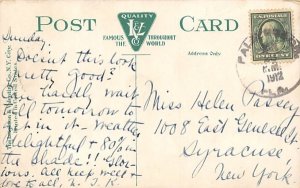 POST CARD
QUALITY
FAMOUS THROUGHOUT THE WORLD
Address Only
ONE CENT
PAL
P.M.
1912
FLA.
Sunday
Doesn't this look
pretty good?
I hardly wait
til tomorrow to
in it. Weather
delightful & 80° in
the shade!! Glor-
ious. All keep well &
love to all,
Miss Helen Passey
1008 East Genesee St
Syracuse
New York